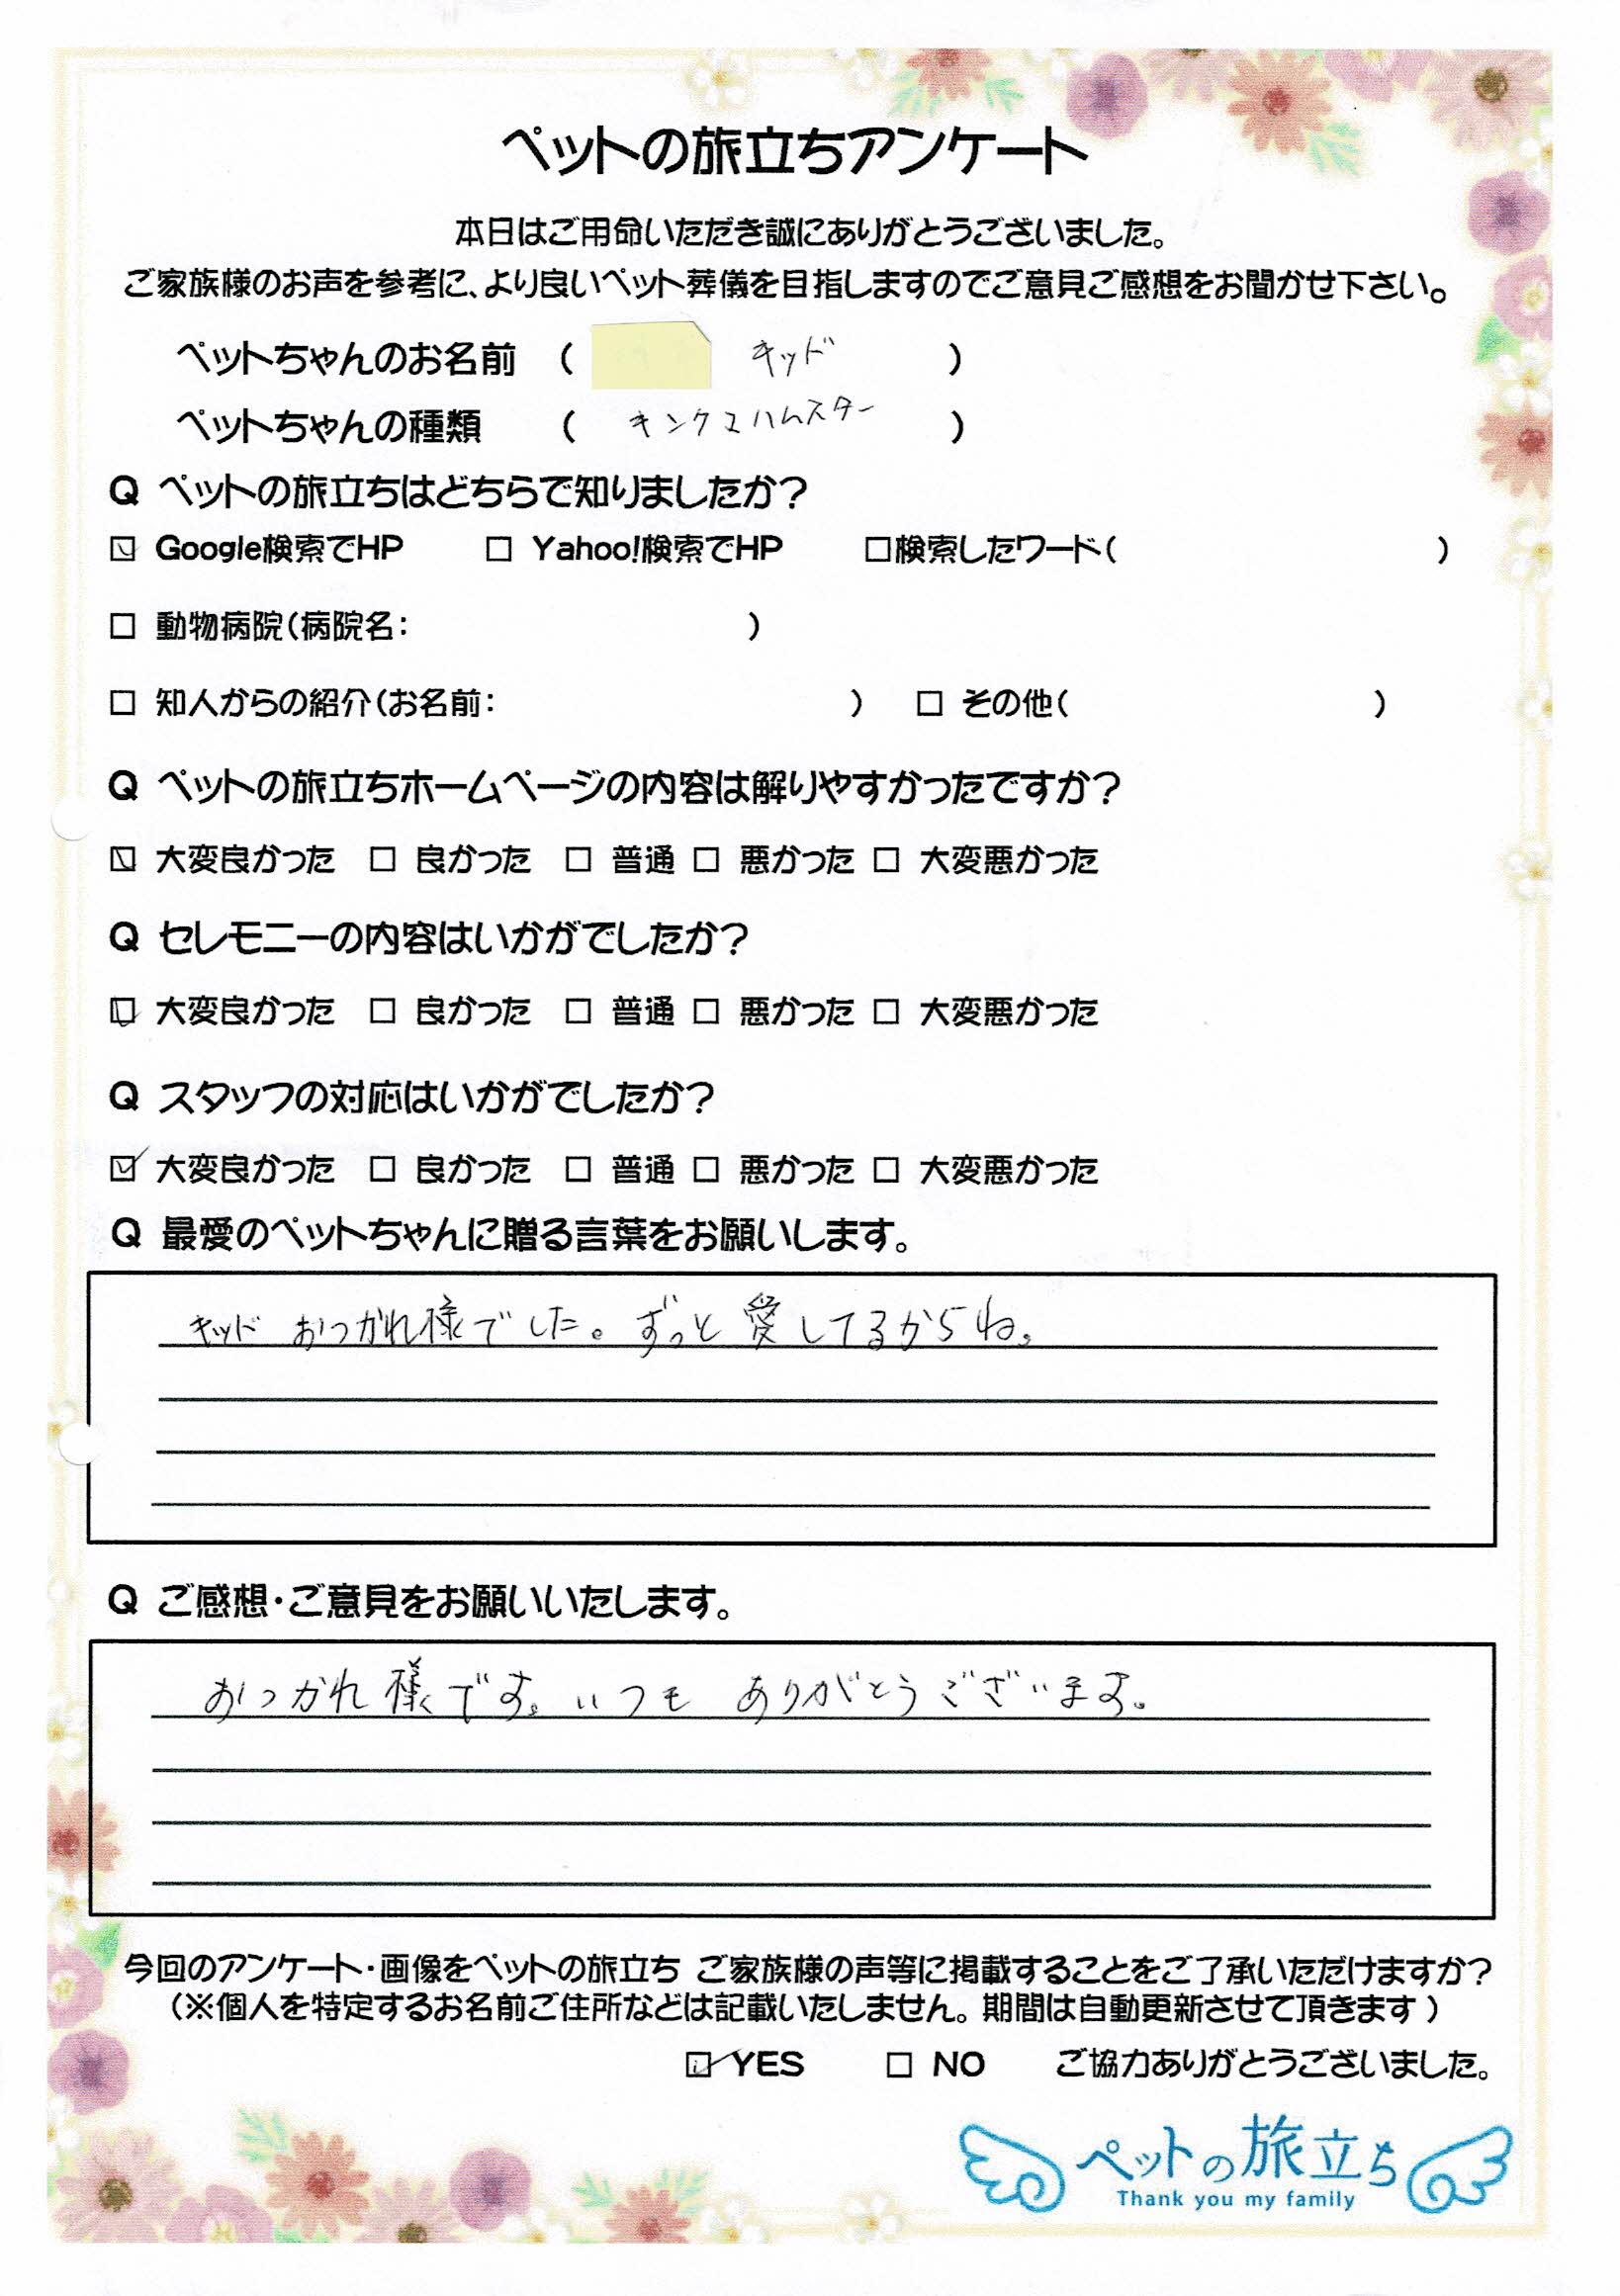 ペットの旅立ちアンケート
本日はご用命いただき誠にありがとうございました。
ご家族様のお声を参考に、より良いペット葬儀を目指しますのでご意見ご感想をお聞かせ下さい。
ペットちゃんのお名前 ( キッド )
ペットちゃんの種類 ( キンクマハムスター )
Q ペットの旅立ちはどちらで知りましたか?
☑ Google検索でHP □ Yahoo!検索でHP □検索したワード( )
□ 動物病院(病院名: )
□ 知人からの紹介(お名前: ) □ その他( )
Q ペットの旅立ちホームページの内容は解りやすかったですか?
☑ 大変良かった □ 良かった □ 普通 □ 悪かった □ 大変悪かった
Q セレモニーの内容はいかがでしたか?
☑ 大変良かった □ 良かった □ 普通 □ 悪かった □ 大変悪かった
Q スタッフの対応はいかがでしたか?
☑ 大変良かった □ 良かった □ 普通 □ 悪かった □ 大変悪かった
Q 最愛のペットちゃんに贈る言葉をお願いします。
キッド おつかれ様でした。ずっと愛してるからね。
Q ご感想・ご意見をお願いいたします。
おつかれ様です。いつも ありがとうございます。
今回のアンケート・画像をペットの旅立ち ご家族様の声等に掲載することをご了承いただけますか?
(※個人を特定するお名前ご住所などは記載いたしません。期間は自動更新させて頂きます)
☑ YES □ NO ご協力ありがとうございました。
ペットの旅立ち
Thank you my family